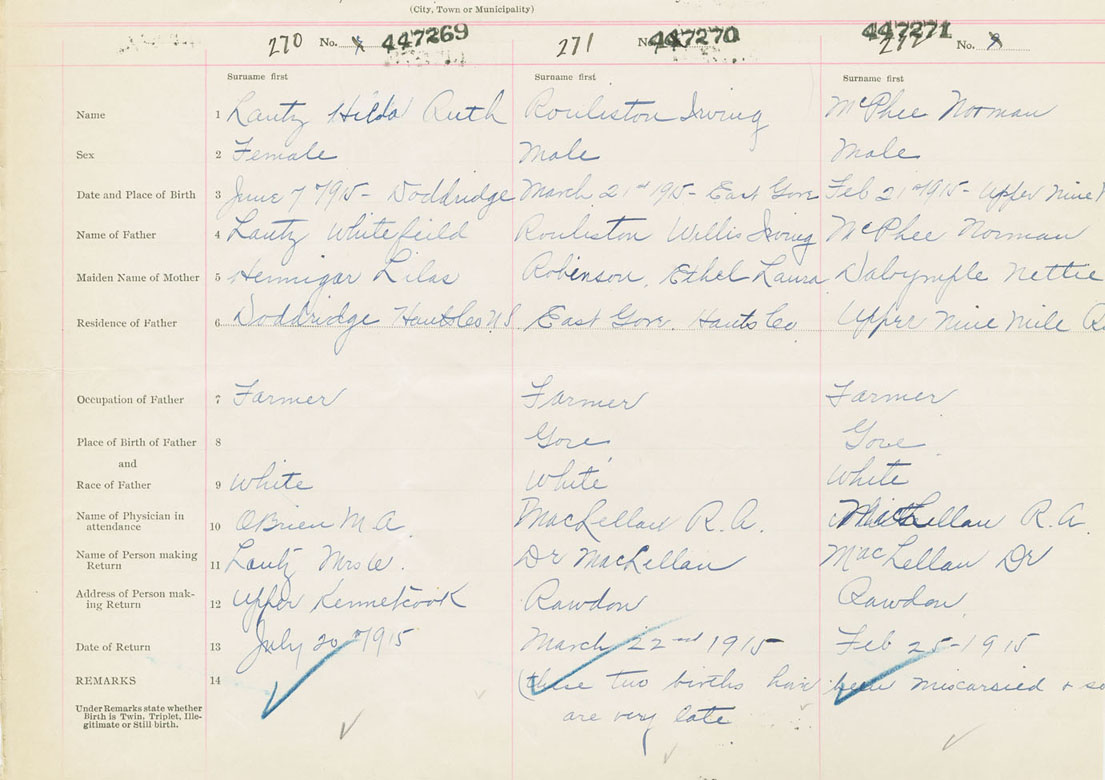 (City, Town or Municipality)
270 No. 447269 271 No. 447270 272 447271 No.
Surname first Surname first Surname first
Name 1 Lantz Hilda Ruth Rouliston Irving McPhee Norman
Sex 2 Female Male Male
Date and Place of Birth 3 June 7th 1915 - Doddridge March 21st 1915 - East Gore Feb 21st 1915 - Upper Nine
Name of Father 4 Lantz Whitefeild Rouliston Willis Irving McPhee Norman
Maiden Name of Mother 5 Hennigar Lilas Robinson, Ethel Laura Dalrymple Nettie
Residence of Father 6 Doddridge Hants Co N.S. East Gore. Hants Co Upper Nine Mile
Occupation of Father 7 Farmer Farmer Farmer
Place of Birth of Father 8 Gore Gore
and
Race of Father 9 White White White
Name of Physician in
attendance 10 OBrien M.A. MacLellan R.A. MacLellan R.A.
Name of Person making
Return 11 Lantz Mrs W. Dr MacLellan MacLellan Dr
Address of Person mak-
ing Return 12 Upper Kennetcook Rawdon Rawdon
Date of Return 13 July 20th 1915 March 22nd 1915 Feb 25 - 1915
REMARKS 14 (these two births have been miscarried + so
are very late
Under Remarks state whether
Birth is Twin, Triplet, Ille-
gitimate or Still birth.